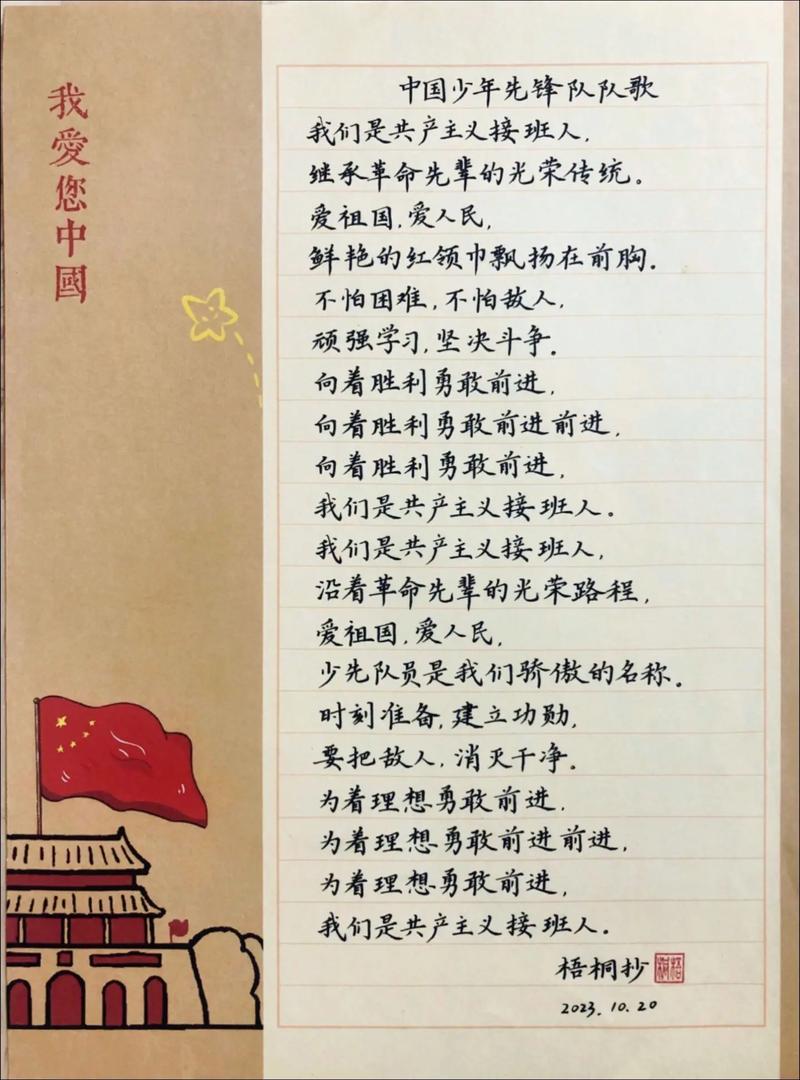 我愛您中國
中国少年先锋队队歌
我们是共产主义接班人,
继承革命先辈的光荣传统。
爱祖国,爱人民,
鲜艳的红领巾飘扬在前胸.
不怕困难,不怕敌人,
顽强学习,坚决斗争.
向着胜利勇敢前进,
向着胜利勇敢前进前进,
向着胜利勇敢前进,
我们是共产主义接班人。
我们是共产主义接班人,
沿着革命先辈的光荣路程,
爱祖国,爱人民,
少先队员是我们骄傲的名称.
时刻准备,建立功勋,
要把敌人,消灭干净.
为着理想勇敢前进,
为着理想勇敢前进前进,
为着理想勇敢前进,
我们是共产主义接班人.
梧桐抄
梧桐
2023.10.20